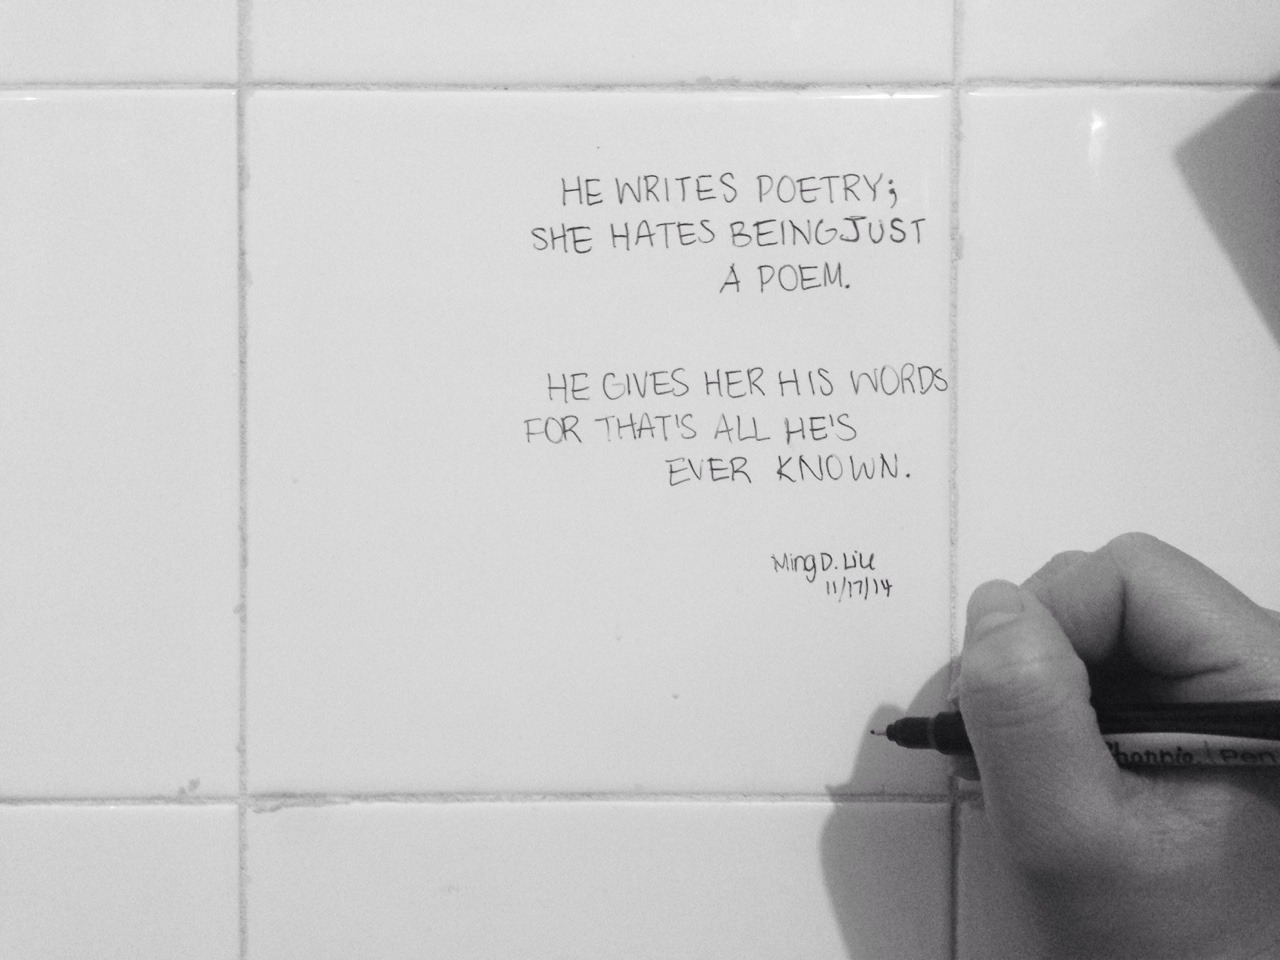 HE WRITES POETRY;
SHE HATES BEING JUST
A POEM.
HE GIVES HER HIS WORDS
FOR THAT'S ALL HE'S
EVER KNOWN.
Ming D. Liu
11/17/14
Sharpie. Pen